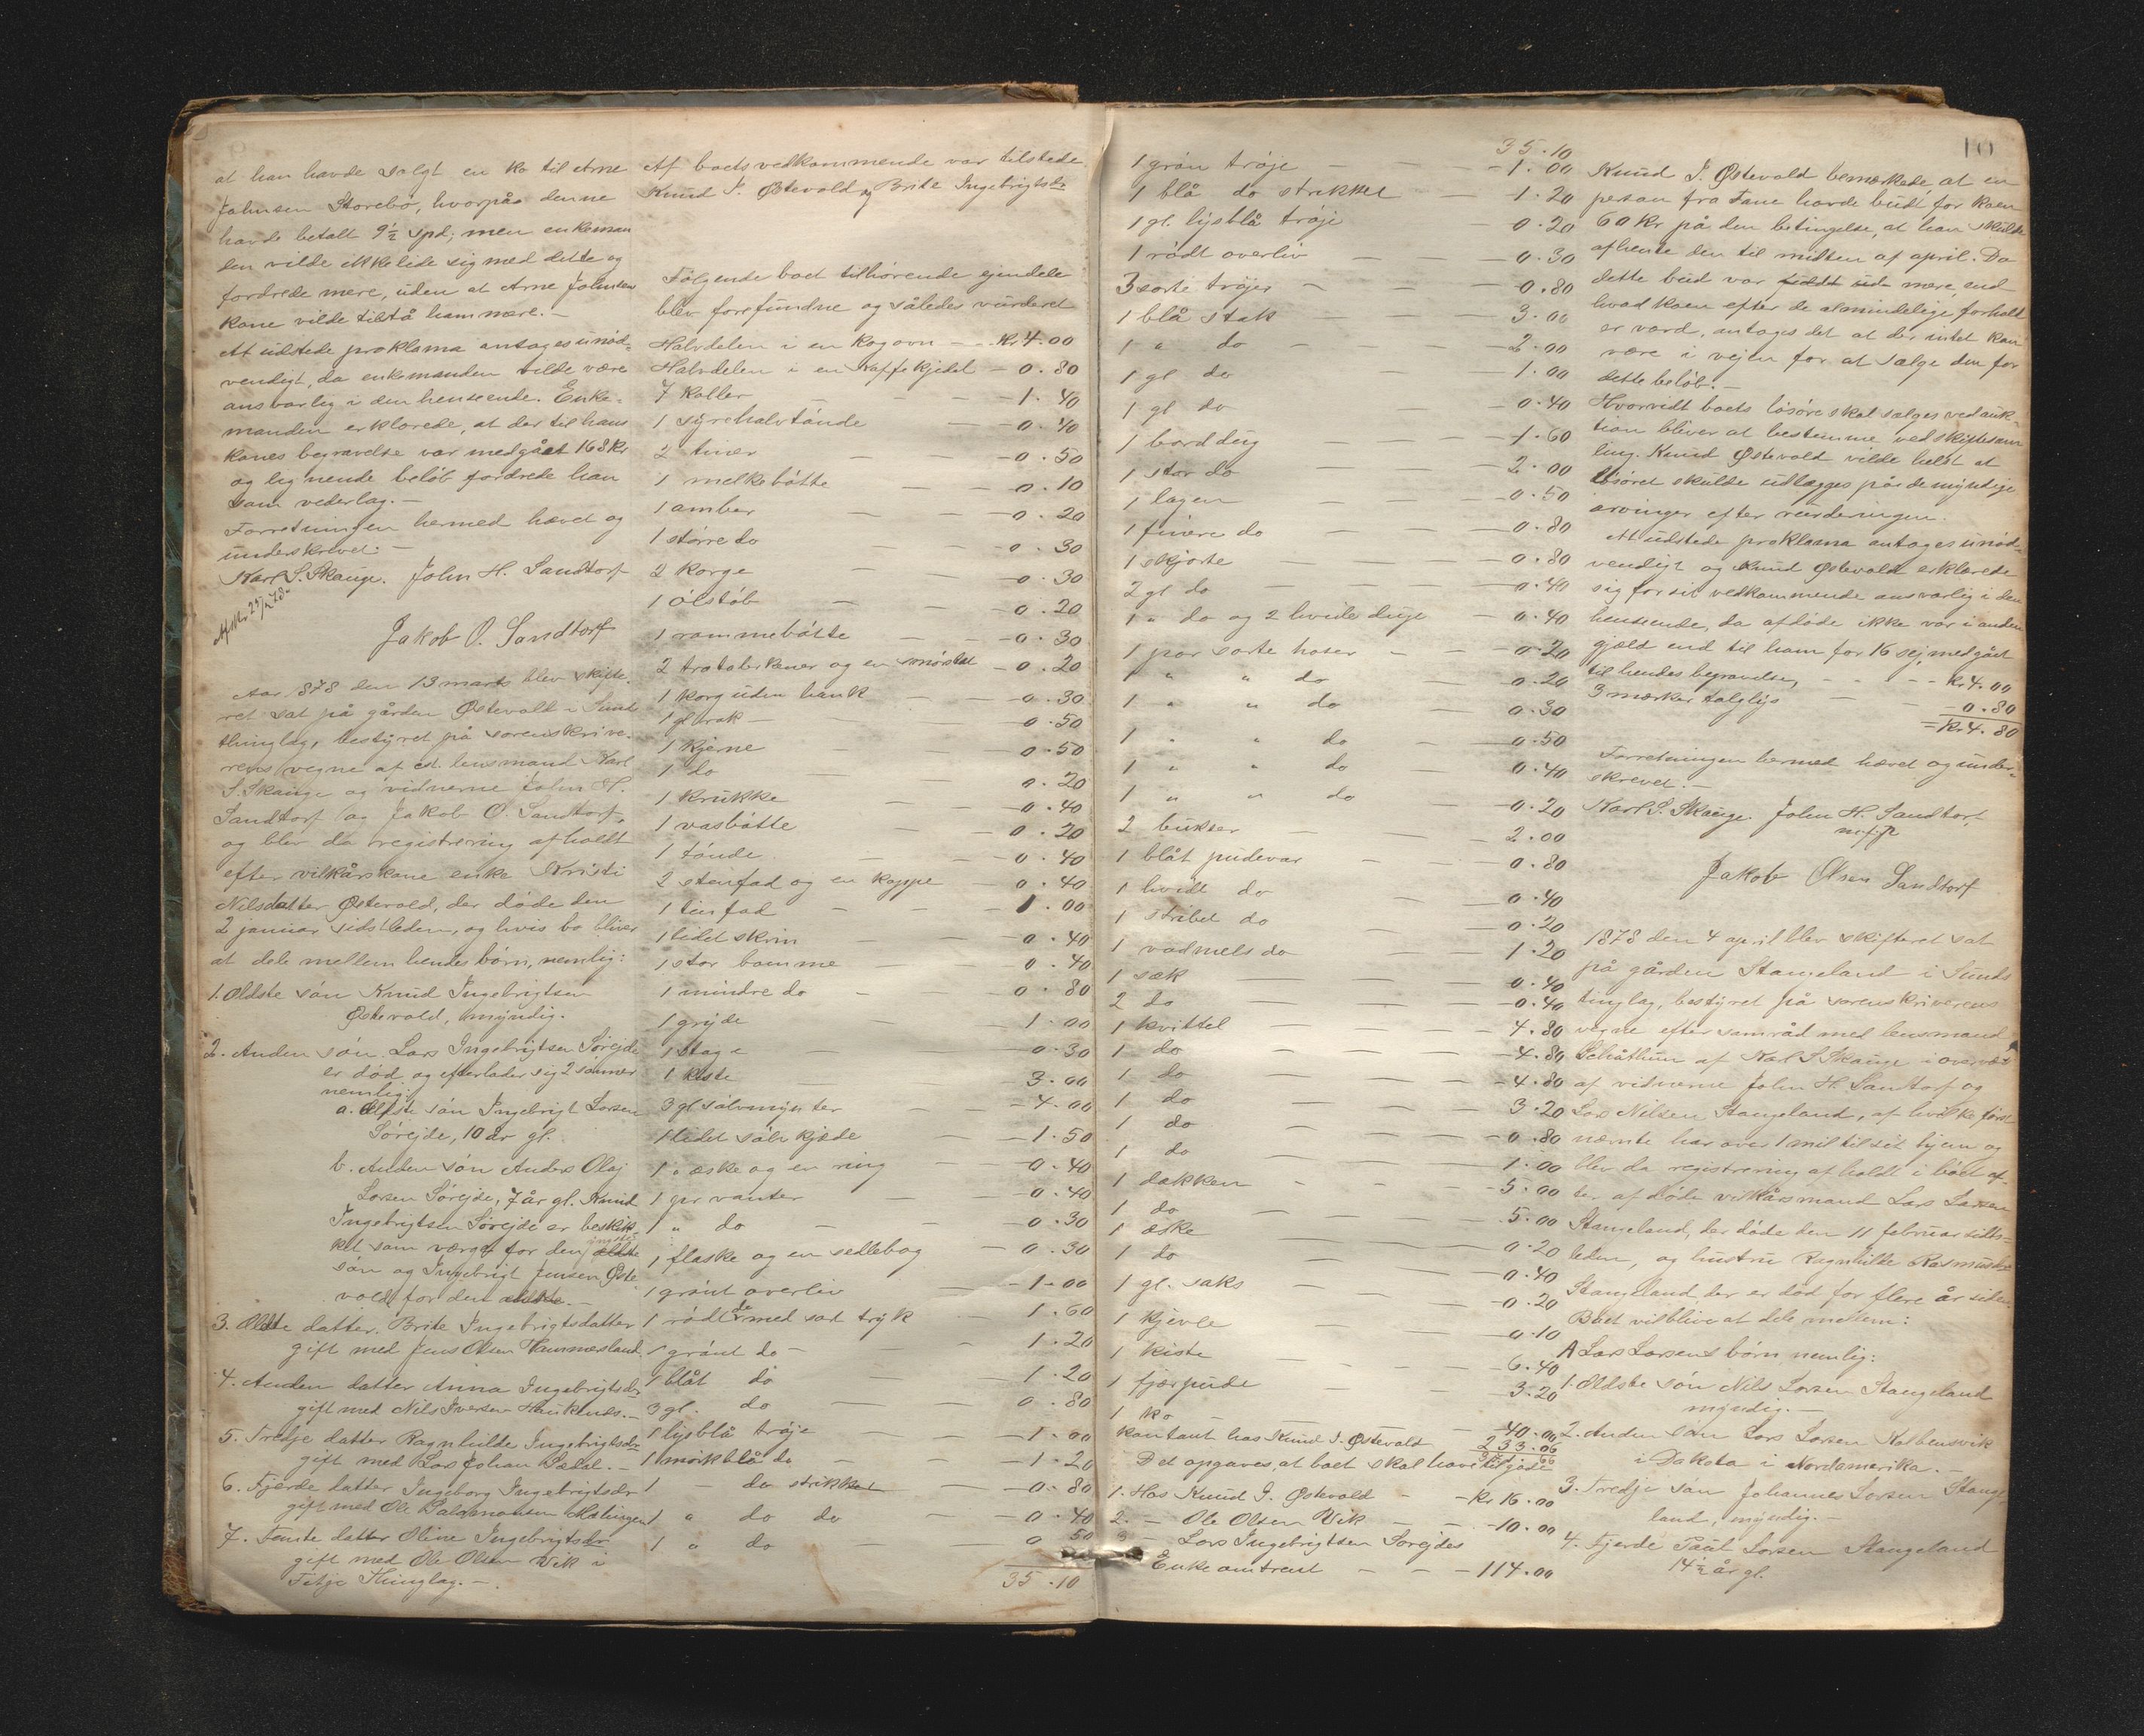 at han havde solgt en ko til Arne
Johnsen Storebø, hvorpåa denne
havde betalt 9½ Spd; men enkeman
den vilde ikke lide sig med dette og
fordrede mere, uden at Arne Johnsen
kone vilde tilstå ham mere. —
At udstede proklama antages unød-
vendigt, da enkemanden vilde være
ansvarlig i den henseende. Enke-
manden erklærede, at der til hans
kones begravelse var medgået 168 Kr
og lignende beløb fordrede han
som vederlag. —
Forretningen hermed hævet og
underskrevet: —
Karl S. Skauge. John H. Sandtorf
Jakob O. Sandtorf
Aar 1878 den 13 marts blev skifte-
ret sat på gården Østevold i Sund
thinglag, bestyret på sorenskrive-
rens vegne af cst. lensmand Karl
S. Skauge og vidnerne John H.
Sandtorf og Jakob O. Sandtorf,
og blev da registrering afholdt
efter vilkårskone enke Kristi
Nilsdatter Østevold, der døde den
2 januar sidstleden, og hvis bo bliver
at dele mellem hendes børn, nemlig:
1. Ældste søn Knud Ingebrigtsen
Østevold, myndig.
2. Anden søn Lars Ingebrigtsen Sørejde
er død og efterlader sig 2 sønner
nemlig
a. Ældste søn Ingebrigt Larsen
Sørejde, 10 år gl.
b. Anden søn Anders Olaj
Larsen Sørejde, 7 år gl. Knud
Ingebrigtsen Sørejde er beskik
ket som værge for den yngste ældste
søn og Ingebrigt Jensen Øste
vold for den ældste. —
3. Ældste datter. Brite Ingebrigtsdatter
gift med Jens Olsen Hammersland.
4. Anden datter Anna Ingebrigtsdr
gift med Nils Iversen Haukenæs. —
5. Tredje datter Ragnhilde Ingebrigtsdr
gift med Lars Johan —
6. Fjerde datter Ingeborg Ingebrigtsdr
gift med Ole Salomonsen
7. Femte datter Oline Ingebrigtsdr
gift med Ole Olsen Vik i
Fitje Thinglag. —
Af boets vedkommende var tilstede
Knud I. Østevold og Brite Ingebrigtsdr
Følgende boet tilhørende ejendele
blev forefundne og således vurderet
Halvdelen i en Kogovn — Kr 4.00
Halvdelen i en Kaffekjedel — 0.80
7 Koller — 1.40
1 syrehalvtønde — 0.40
2 tiner — 0.50
1 melkebøtte — 0.10
1 amber — 0.20
1 større do — 0.30
2 Korge — 0.30
1 ølstøb — 0.20
1 rommebøtte — 0.30
2 tratalerkener og en smørask — 0.20
1 korg uden hank — 0.30
1 gl. rok — 0.50
1 Kjerne — 0.50
1 do — 0.20
1 Krukke — 0.40
1 vasbøtte — 0.20
1 tønde — 0.40
2 stenfad og en koppe — 0.40
1 tinfad — 1.00
1 lidet skrin — 0.40
1 stor bomme — 0.40
1 mindre do — 0.80
1 gryde — 1.00
1 stage — 0.30
1 kiste — 3.00
3 gl sølvmynter — 4.00
1 lidet sølvkjæde — 1.50
1 " æske og en ring — 0.40
1 par vanter — 0.40
1 " do — 0.30
1 flaske og en sedlebog — 0.30
1 grønt overliv — 1.00
1 rødt do med sort tryk — 1.60
1 grønt do — 1.20
1 blåt do — 1.20
3 gl. do — 0.80
1 lysblå trøje — 1.00
1 mørkblå do — 1.20
1 — do strikket — 0.80
1 " do do — 0.40
1 " do — 0.50
35.10
10
35.10
1 grøn trøje — 1.00
1 blå do strikket — 1.20
1 gl. lysblå trøje — 0.20
1 rødt overliv — 0.30
3 sorte trøjer — 0.80
1 blå stak — 3.00
1 " do — 2.00
1 gl do — 1.00
1 gl do — 0.40
1 borddug — 1.60
1 stor do — 2.00
1 lagen — 0.50
1 finere do — 0.80
1 skjorte — 0.80
2 gl do — 0.40
1 " do og 2 hvide duge — 0.40
1 par sorte hoser — 0.20
1 " " do — 0.20
1 " " do — 0.30
1 " " do — 0.50
1 " " do — 0.40
1 " " do — 0.20
2 bukser — 2.00
1 blåt pudevar — 0.80
1 hvidt do — 0.40
1 stribet do — 0.20
1 vadmels do — 1.20
1 sæk — 0.40
2 do — 0.40
1 kvittel — 4.80
1 do — 4.80
1 do — 4.80
1 do — 3.20
1 do — 0.80
1 do — 1.00
1 dakken — 5.00
1 do — 5.00
1 æske — 0.20
1 do — 0.40
1 gl. saks — 0.20
1 kjevle — 0.10
1 kiste — 6.40
1 fjærpude — 3.20
1 ko — 40.00
Kontant hos Knud I. Østevold 233.06
Det opgaves, at boet skal have tilgode
1. Hos Knud I. Østevold — Kr 16.00
2. — Ole Olsen Vik — 10.00
3 — Lars Ingebrigtsen Sørejdes
Enke omtrent — 114.00
Knud I. Østevold bemærkede, at en
person fra Fane havde budt for koen
60 Kr på den betingelse, at han skulde
afhente den til midten af april. Da
dette bud var mere end
hvad koen efter de almindelige forhold
er værd, antages det at der intet kan
være i vejen for at sælge den for
dette beløb. —
Hvorvidt boets løsøre skal sælges ved auk-
tion bliver at bestemme ved skiftesam
ling. Knud Østevold vilde helst at
løsøret skulde udlægges på de myndige
arvinger efter vurderingen.
At udstede proklama antages unød-
vendigt og Knud Østevold erklærede
sig for sit vedkommende ansvarlig i den
henseende, da afdøde ikke var i anden
gjæld end til ham for 16 sej, medgået
til hendes begravelse, — Kr. 4.00
3 mærker talglys — 0.80
= Kr. 4.80
Forretningen hermed hævet og under-
skrevet. —
Karl S. Skauge. John H. Sandtorf
m. f. p
Jakob Olsen Sandtorf
1878 den 4 april blev skifteret sat
på gården Stangeland i Sunds
tinglag, bestyret på sorenskriverens
vegne efter samråd med lensmand
Schøthun af Karl S Skauge i overvær
af vidnerne John H. Sandtorf og
Lars Nilsen Stangeland, af hvilke først
nævnte har over 1 mil til sit hjem og
blev da registrering afholdt i boet ef-
ter afdøde vilkårsmand Lars Larsen
Stangeland, der døde den 11 februar sidst-
leden, og hustru Ragnhilde Rasmusdr
Stangeland der er død for flere år siden.
Boet vil blive at dele mellem:
A Lars Larsens børn nemlig:
1. Ældste søn Nils Larsen Stangeland
myndig. —
2. Anden søn Lars Larsen Kalbensvik
i Dakota i Nordamerika. —
3. Tredje søn Johannes Larsen Stange
land, myndig. —
4. Fjerde Paul Larsen Stangeland
14½ år gl.